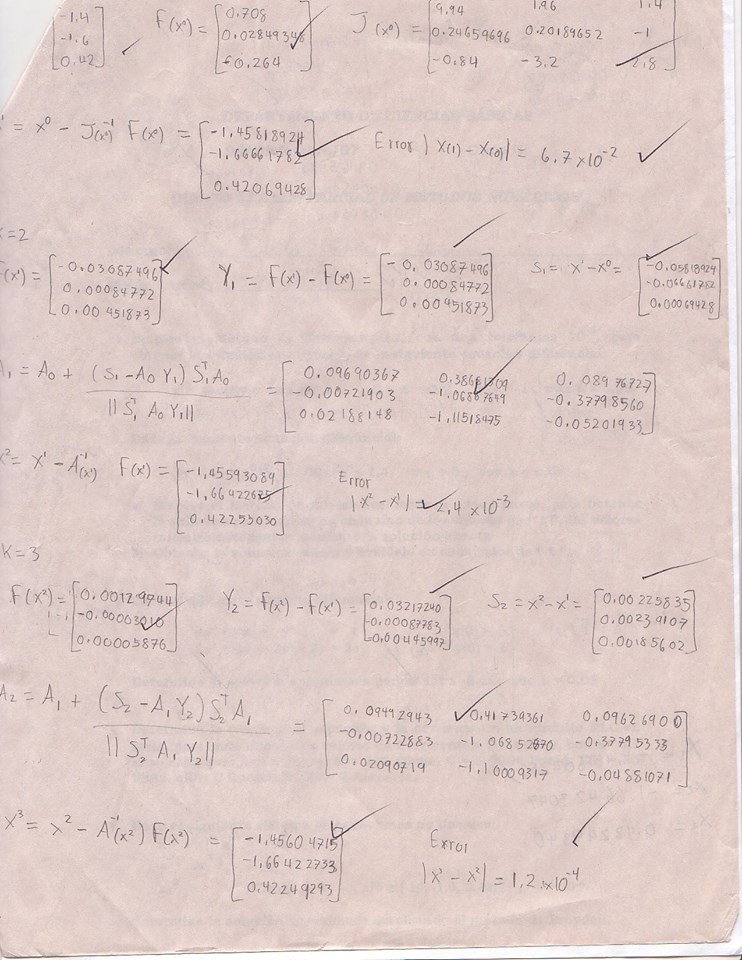 [-1.4
-1.6
0.42]
F(x⁰) = [0.708
0.02849348
-0.264]
J(x⁰) = [9.94 1.96 1.4
0.24659696 0.20189652 -1
-0.84 -3.2 2.8]
¹ = x⁰ - J(x⁰)⁻¹ F(x⁰) = [-1.45818924
-1.66661782
0.42069428]
Error |x(1) - x(0)| = 6.7 x10⁻²
K=2
F(x¹) = [-0.03087496
0.00084772
0.00451873]
Y₁ = F(x¹) - F(x⁰) = [-0.03087496
0.00084772
0.00451873]
S₁ = x¹ - x⁰ = [-0.05818924
-0.06661782
0.00069428]
A₁ = A₀ + (S₁ - A₀ Y₁) S₁ᵀ A₀ / ||S₁ᵀ A₀ Y₁|| = [0.09690367 0.38681309 0.08976727
-0.00721903 -1.06867849 -0.37798560
0.02188148 -1.11518475 -0.05201933]
x² = x¹ - A⁻¹(x¹) F(x¹) = [-1.45593089
-1.66422675
0.42255030]
Error
|x² - x¹| = 2.4 x10⁻³
K=3
F(x²) = [0.00129744
-0.00003010
0.00005876]
Y₂ = F(x²) - F(x¹) = [0.03217240
-0.00087783
-0.00445997]
S₂ = x² - x¹ = [0.00225835
0.00239107
0.00185602]
A₂ = A₁ + (S₂ - A₁ Y₂) S₂ᵀ A₁ / ||S₂ᵀ A₁ Y₂|| = [0.09442943 0.41739361 0.09626900
-0.00722883 -1.06852670 -0.37795333
0.02090719 -1.10009317 -0.04881071]
x³ = x² - A⁻¹(x²) F(x²) = [-1.45604715
-1.66422733
0.42249293]
Error
|x³ - x²| = 1.2 x10⁻⁴